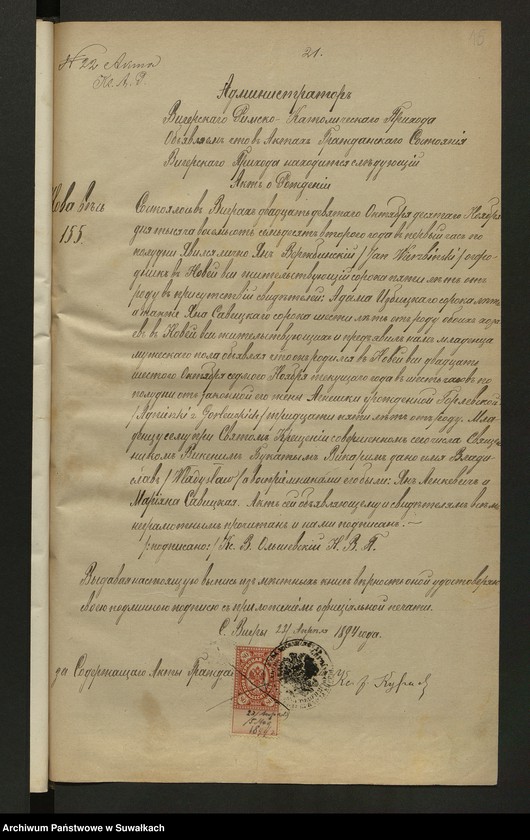 21.
№ 22 Акта
Кс. А. Р.
Администраторъ
Вигерскаго Римско-Католическаго Прихода
Объявляетъ что въ Актахъ Гражданскаго Состоянія
Вигерскаго Прихода находится слѣдующій
Актъ о Рожденіи
Нова Вѣсь
155.
Состоялось въ Виграхъ двадцать девятаго Октября десятаго Ноября
дня тысяча восемьсотъ семьдесятъ второго года въ первый часъ по
полудни Явился лично Янъ Вержбинскій /Jan Wierzbinski/
въ Новой вси жительствующій сорока пяти лѣтъ отъ
роду въ присутствіи свидѣтелей: Адама сорока лѣтъ
а также Яна Савицкаго сорока шести лѣтъ отъ роду обоихъ
въ Новой вси жительствующихъ и предъявилъ намъ младенца
мужескаго пола объявляя что онъ родился въ Новой вси двадцать
шестого Октября седьмого Ноября текущаго года въ шесть часовъ по
полудни отъ законной его жены Агнешки урожденной Горлевской
/Agnieszki z Gorlewskich/ тридцати пяти лѣтъ отъ роду. Мла-
денцу сему при Святомъ Крещеніи совершенномъ сего числа Священ-
никомъ Викаримъ дано имя Влади-
славъ /Władysław/ а воспріемниками его были: Янъ Ленкевичъ и
Маріяна Савицкая. Актъ сей объявляющему и свидѣтелямъ всѣмъ
неграмотнымъ прочитанъ и нами подписанъ. —
/:подписано:/ Кс. В. Ольшевскій Н. В. П.
Выдавая настоящую выпись изъ мѣстныхъ книгъ вѣрность оной удостовѣряю
своею подлинною подписью съ приложеніемъ официальной печати.
С. Вигры 23/ Апрѣля 1894 года.
да Содержащаго Акты Граждан
Кс.
Archiwum Państwowe w Suwałkach